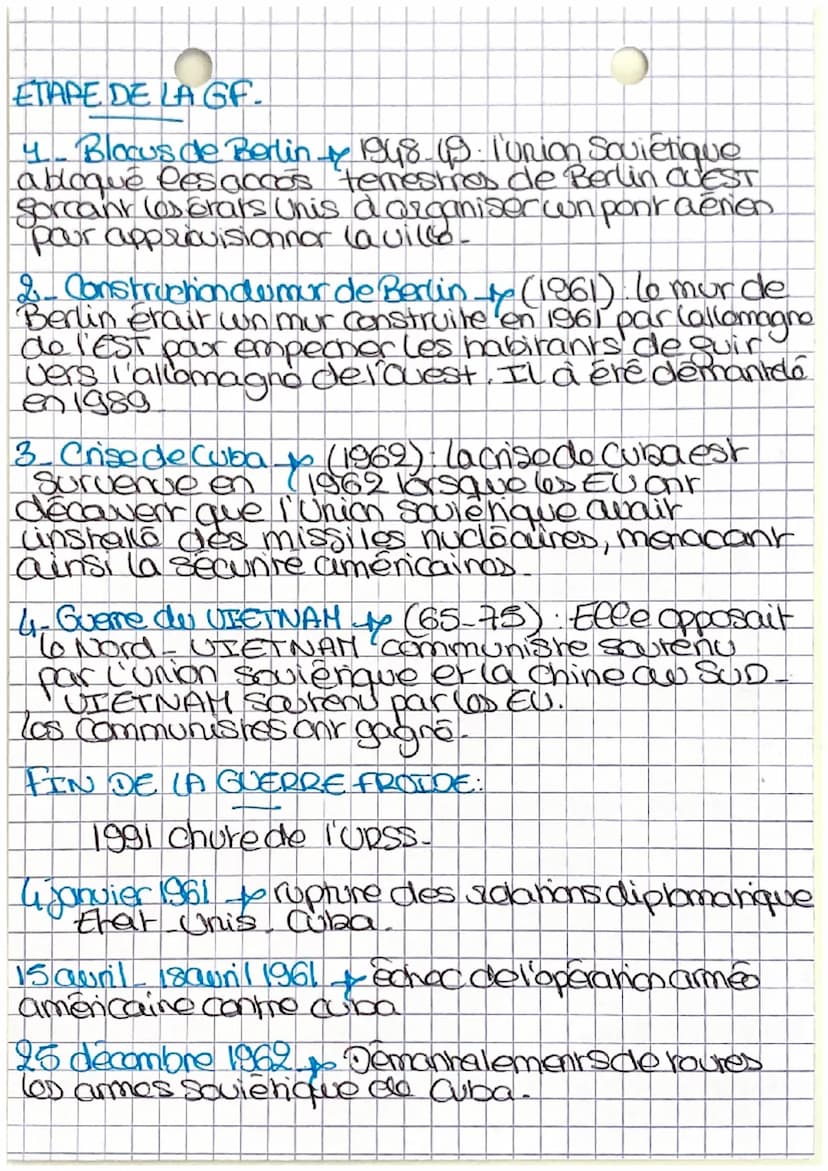 ETAPE DE LA GF.
1_ Blocus de Berlin → 1948-49 : l'union Soviétique
a bloqué les accès terrestres de Berlin OUEST
forçant les États Unis d'organiser un pont aérien
pour approvisionner la ville.
2_ Construction du mur de Berlin → (1961) : le mur de
Berlin était un mur construite en 1961 par l'allemagne
de l'EST pour empecher les habitants de fuir
vers l'allemagne de l'ouest. Il a été démantelé
en 1989
3_ Crise de Cuba → (1962) : la crise de Cuba est
survenue en 1962 lorsque les EU ont
découvert que l'Union soviétique avait
installé des missiles nucléaires, menacant
ainsi la sécurité américaines.
4_ Guerre du VIETNAM → (65-75) : Elle opposait
le Nord-VIETNAM communiste soutenu
par l'union soviétique et la Chine au SUD-
VIETNAM soutenu par les EU.
les communistes ont gagné.
FIN DE LA GUERRE FROIDE :
1991 chute de l'URSS.
4 janvier 1961 → rupture des relations diplomatique
Etat-Unis. Cuba.
15 avril - 18 avril 1961 → échec de l'opération armée
américaine contre cuba
25 décembre 1962 → Démantelements de toutes
les armes soviétique de Cuba.